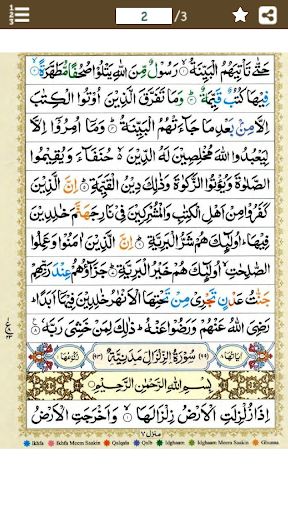 2 /3
حَتّٰى تَاْتِیَهُمُ الْبَیِّنَةُ ۙ رَسُوْلٌ مِّنَ اللّٰهِ یَتْلُوْا صُحُفًا مُّطَهَّرَةً ۙ
فِیْهَا كُتُبٌ قَیِّمَةٌ ؕ وَمَا تَفَرَّقَ الَّذِیْنَ اُوْتُوا الْكِتٰبَ
اِلَّا مِنْۢ بَعْدِ مَا جَآءَتْهُمُ الْبَیِّنَةُ ؕ وَمَاۤ اُمِرُوْۤا اِلَّا
لِیَعْبُدُوا اللّٰهَ مُخْلِصِیْنَ لَهُ الدِّیْنَ ۙ حُنَفَآءَ وَیُقِیْمُوا
الصَّلٰوةَ وَیُؤْتُوا الزَّكٰوةَ وَذٰلِكَ دِیْنُ الْقَیِّمَةِ ؕ اِنَّ الَّذِیْنَ
كَفَرُوْا مِنْ اَهْلِ الْكِتٰبِ وَالْمُشْرِكِیْنَ فِیْ نَارِ جَهَنَّمَ خٰلِدِیْنَ
فِیْهَا ؕ اُولٰٓىِٕكَ هُمْ شَرُّ الْبَرِیَّةِ ؕ اِنَّ الَّذِیْنَ اٰمَنُوْا وَعَمِلُوا
الصّٰلِحٰتِ ۙ اُولٰٓىِٕكَ هُمْ خَیْرُ الْبَرِیَّةِ ؕ جَزَآؤُهُمْ عِنْدَ رَبِّهِمْ
جَنّٰتُ عَدْنٍ تَجْرِیْ مِنْ تَحْتِهَا الْاَنْهٰرُ خٰلِدِیْنَ فِیْهَاۤ اَبَدًا ؕ
رَضِیَ اللّٰهُ عَنْهُمْ وَرَضُوْا عَنْهُ ؕ ذٰلِكَ لِمَنْ خَشِیَ رَبَّهٗ
اٰیَاتُهَا ٨ (٩٩) سُوْرَةُ الزِّلْزَالِ مَدَنِیَّةٌ (٩٣) رُكُوْعُهَا ١
بِسْمِ اللّٰهِ الرَّحْمٰنِ الرَّحِیْمِ
اِذَا زُلْزِلَتِ الْاَرْضُ زِلْزَالَهَا ۙ وَاَخْرَجَتِ الْاَرْضُ
منزل ٧
Ikhfa Ikhfa Meem Saakin Qalqala Qalb Idghaam Idghaam Meem Saakin Ghunna